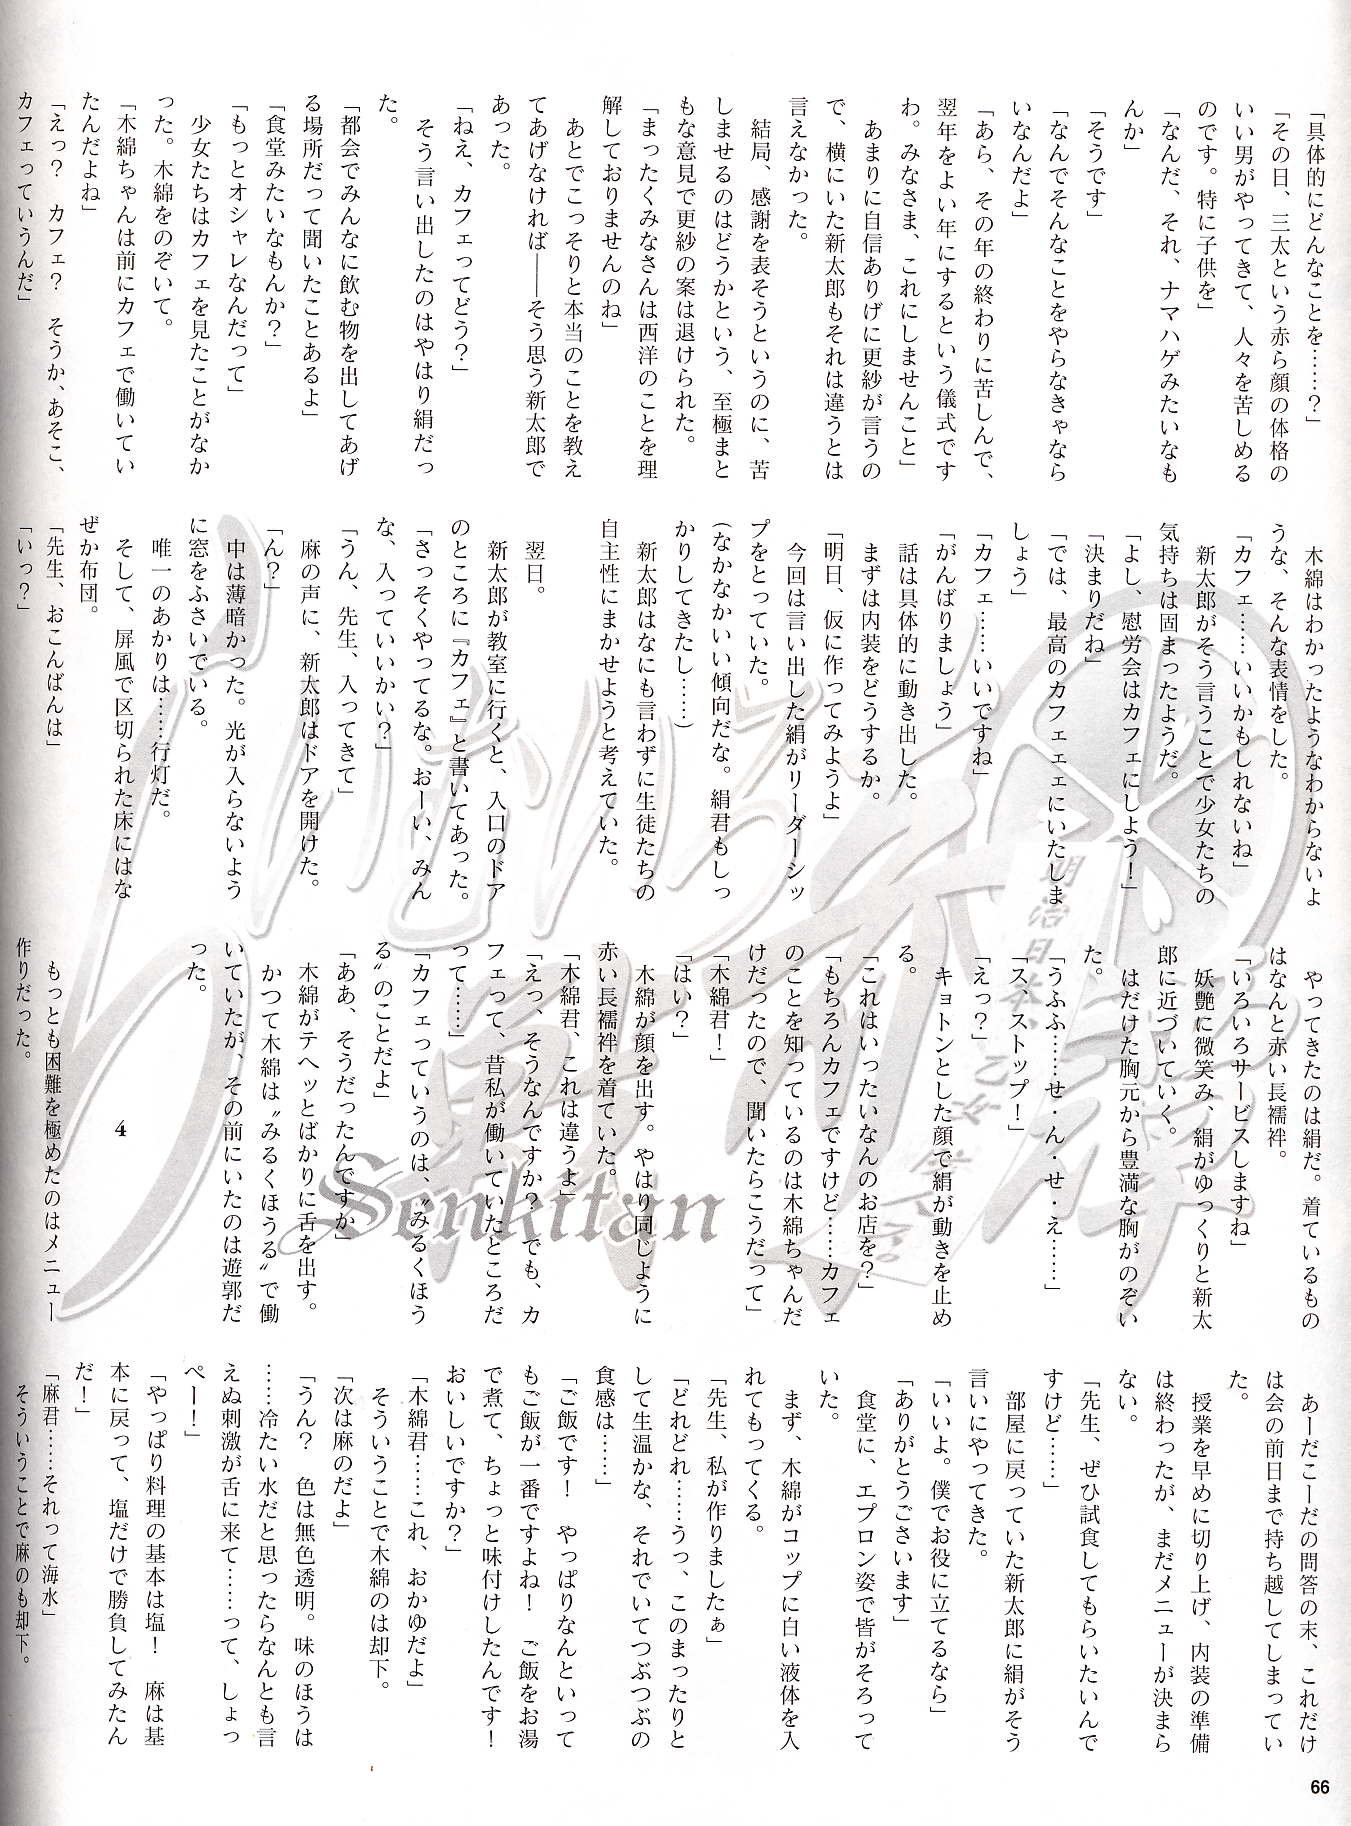 「具体的にどんなことを……？」
「その日、三太という赤ら顔の体格の
いい男がやってきて、人々を苦しめる
のです。特に子供を」
「なんだ、それ、ナマハゲみたいなも
んか」
「そうです」
「なんでそんなことをやらなきゃなら
ないんだよ」
「あら、その年の終わりに苦しんで、
翌年をよい年にするという儀式です
わ。みなさま、これにしませんこと」
　あまりに自信ありげに更紗が言うの
で、横にいた新太郎もそれは違うとは
言えなかった。
　結局、感謝を表そうというのに、苦
しませるのはどうかという、至極まと
もな意見で更紗の案は退けられた。
「まったくみなさんは西洋のことを理
解しておりませんのね」
　あとでこっそりと本当のことを教え
てあげなければ――そう思う新太郎で
あった。
「ねえ、カフェってどう？」
　そう言い出したのはやはり絹だっ
た。
「都会でみんなに飲む物を出してあげ
る場所だって聞いたことあるよ」
「食堂みたいなもんか？」
「もっとオシャレなんだって」
　少女たちはカフェを見たことがなか
った。木綿をのぞいて。
「木綿ちゃんは前にカフェで働いてい
たんだよね」
「えっ？　カフェ？　そうか、あそこ、
カフェっていうんだ」
　木綿はわかったようなわからないよ
うな、そんな表情をした。
「カフェ……いいかもしれないね」
　新太郎がそう言うことで少女たちの
気持ちは固まったようだ。
「よし、慰労会はカフェにしよう！」
「決まりだね」
「では、最高のカフェェにいたしま
しょう」
「カフェ……いいですね」
「がんばりましょう」
　話は具体的に動き出した。
　まずは内装をどうするか。
「明日、仮に作ってみようよ」
　今回は言い出した絹がリーダーシッ
プをとっていた。
（なかなかいい傾向だな。絹君もしっ
かりしてきたし……）
　新太郎はなにも言わずに生徒たちの
自主性にまかせようと考えていた。
　翌日。
　新太郎が教室に行くと、入口のドア
のところに『カフェ』と書いてあった。
「さっそくやってるな。おーい、みん
な、入っていいかい？」
「うん、先生、入ってきて」
　麻の声に、新太郎はドアを開けた。
「ん？」
　中は薄暗かった。光が入らないよう
に窓をふさいでいる。
　唯一のあかりは……行灯だ。
　そして、屏風で区切られた床にはな
ぜか布団。
「先生、おこんばんは」
「いっ？」
　やってきたのは絹だ。着ているもの
はなんと赤い長襦袢。
「いろいろサービスしますね」
　妖艶に微笑み、絹がゆっくりと新太
郎に近づいていく。
　はだけた胸元から豊満な胸がのぞい
た。
「うふふ……せ・ん・せ・え……」
「ス、ストップ！」
「えっ？」
　キョトンとした顔で絹が動きを止め
る。
「これはいったいなんのお店を？」
「もちろんカフェですけど……カフェ
のことを知っているのは木綿ちゃんだ
けだったので、聞いたらこうだって」
「木綿君！」
「はい？」
　木綿が顔を出す。やはり同じように
赤い長襦袢を着ていた。
「木綿君、これは違うよ」
「えっ、そうなんですか？　でも、カ
フェって、昔私が働いていたところだ
って……」
「カフェっていうのは、〝みるくほう
る〟のことだよ」
「ああ、そうだったんですか」
　木綿がテヘッとばかりに舌を出す。
　かつて木綿は〝みるくほうる〟で働
いていたが、その前にいたのは遊郭だ
った。
4
　もっとも困難を極めたのはメニュー
作りだった。
　あーだこーだの問答の末、これだけ
は会の前日まで持ち越してしまってい
た。
　授業を早めに切り上げ、内装の準備
は終わったが、まだメニューが決まら
ない。
「先生、ぜひ試食してもらいたいんで
すけど……」
　部屋に戻っていた新太郎に絹がそう
言いにやってきた。
「いいよ。僕でお役に立てるなら」
「ありがとうございます」
　食堂に、エプロン姿で皆がそろって
いた。
　まず、木綿がコップに白い液体を入
れてもってくる。
「先生、私が作りましたぁ」
「どれどれ……うっ、このまったりと
して生温かな、それでいてつぶつぶの
食感は……」
「ご飯です！　やっぱりなんといって
もご飯が一番ですよね！　ご飯をお湯
で煮て、ちょっと味付けしたんです！
おいしいですか？」
「木綿君……これ、おかゆだよ」
　そういうことで木綿のは却下。
「次は麻のだよ」
「うん？　色は無色透明。味のほうは
……冷たい水だと思ったらなんとも言
えぬ刺激が舌に来て……って、しょっ
ぺー！」
「やっぱり料理の基本は塩！　麻は基
本に戻って、塩だけで勝負してみたん
だ！」
「麻君……それって海水」
　そういうことで麻のも却下。
Senkitan
66